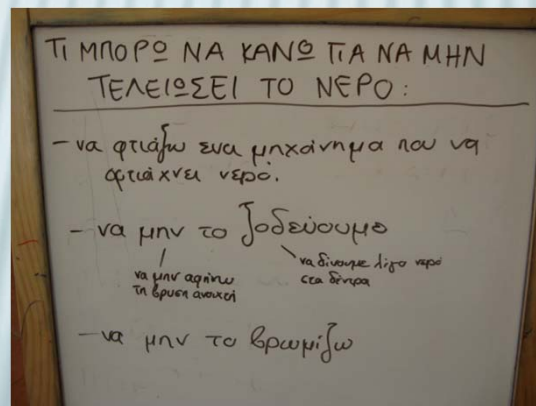 ΤΙ ΜΠΟΡΩ ΝΑ ΚΑΝΩ ΓΙΑ ΝΑ ΜΗΝ
ΤΕΛΕΙΩΣΕΙ ΤΟ ΝΕΡΟ:
- να φτιάξω ενα μηχάνημα που να
φτιάχνει νερό.
- να μην το ξοδεύουμε
να μην αφήνω
τη βρυση ανοιχτή
να δίνουμε λίγο νερό
στα δέντρα
- να μην το βρωμίζω